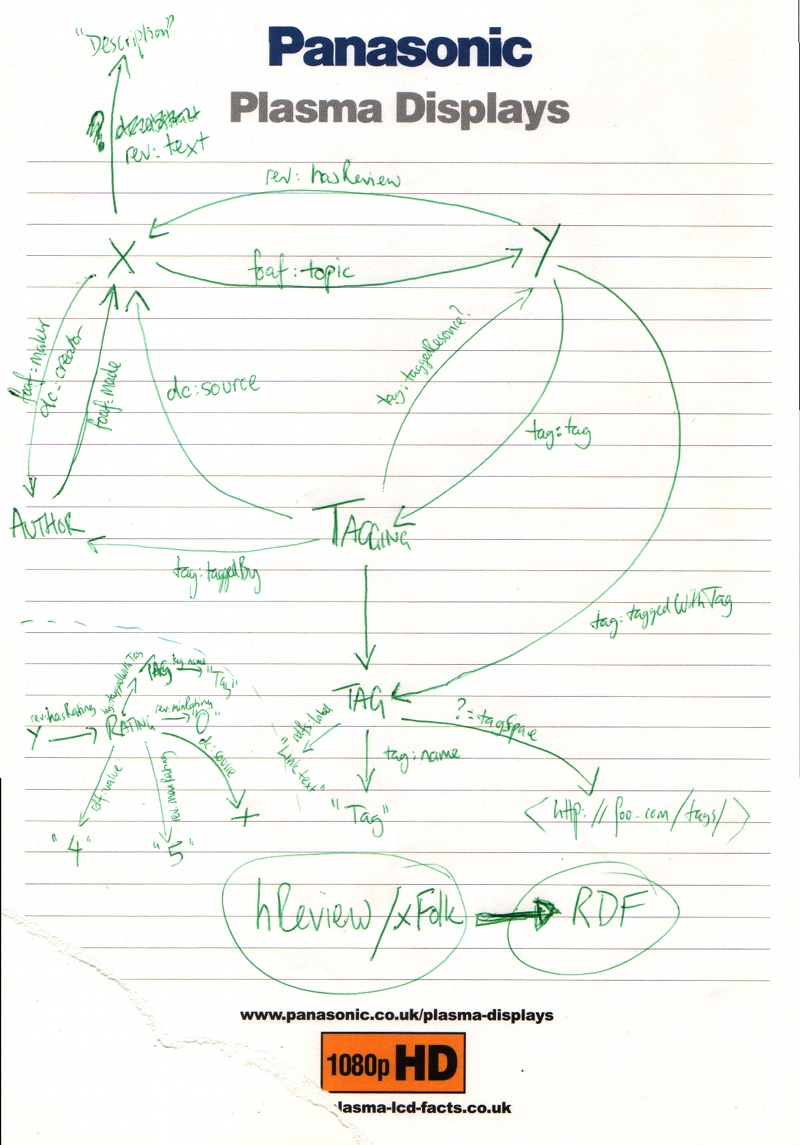 Panasonic
Plasma Displays
"Description"
?
rev: text
rev: hasReview
X
Y
foaf: topic
foaf: maker
dc: creator
foaf: made
dc: source
tag: taggedResource?
tag: tag
AUTHOR
TAGGING
tag: taggedBy
tag: taggedWithTag
TAG
rdfs: label
"link text"
tag: name
"Tag"
?: tagSpace
<http://foo.com/tags/>
Y
rev: hasRating
RATING
tag: taggedWithTag
TAG
tag: name
"Tag"
rev: minRating
"0"
dc: source
rdf: value
"4"
rev: maxRating
"5"
hReview/xFolk
RDF
www.panasonic.co.uk/plasma-displays
1080p HD
lasma-lcd-facts.co.uk